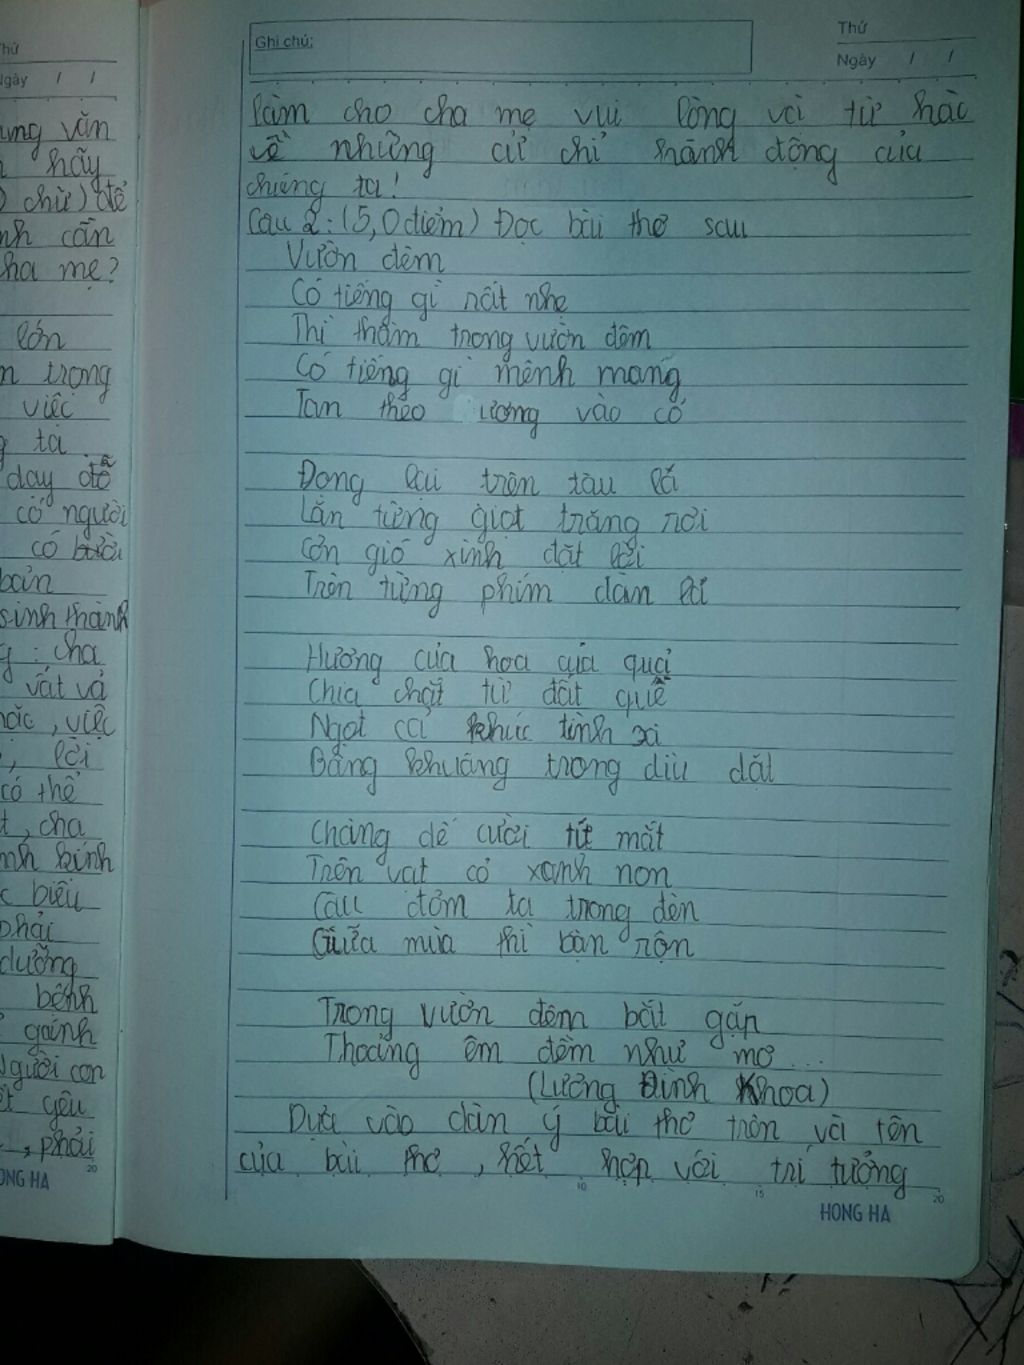 Thứ
Ngày / /
ung văn
hãy
chữ) để
nh cần
cha mẹ?
lớn
n trọng
việc
g ta
dạy dỗ
có người
có
bản
sinh thành
g : cha
vất vả
, việc
, lời
có thể
t, cha
nh kính
c biểu
phải
dưỡng
bệnh
gánh
Người con
yêu
, phải
20
ONG HA
Ghi chú:
Thứ
Ngày / /
làm cho cha mẹ vui lòng và tự hào
về những cử chỉ hành động của
chúng ta!
Câu 2: (5,0 điểm) Đọc bài thơ sau
Vườn đêm
Có tiếng gì rất nhẹ
Thì thầm trong vườn đêm
Có tiếng gì mênh mang
Tan theo sương vào cỏ
Đọng lại trên tàu lá
Lăn từng giọt trăng rơi
Cơn gió xinh đặt lời
Trên từng phím đàn lá
Hương của hoa của quả
Chia chắt từ đất quê
Ngọt cả khúc tình xa
Bâng khuâng trong dìu dặt
Chàng dế cười tít mắt
Trên vạt cỏ xanh non
Cậu đom ta trong đèn
Giữa mùa thi bận rộn
Trong vườn đêm bắt gặp
Thoảng êm đềm như mơ ...
(Lương Đình Khoa)
Dựa vào dàn ý bài thơ trên và tên
của bài thơ , kết hợp với trí tưởng
10
15
20
HONG HA